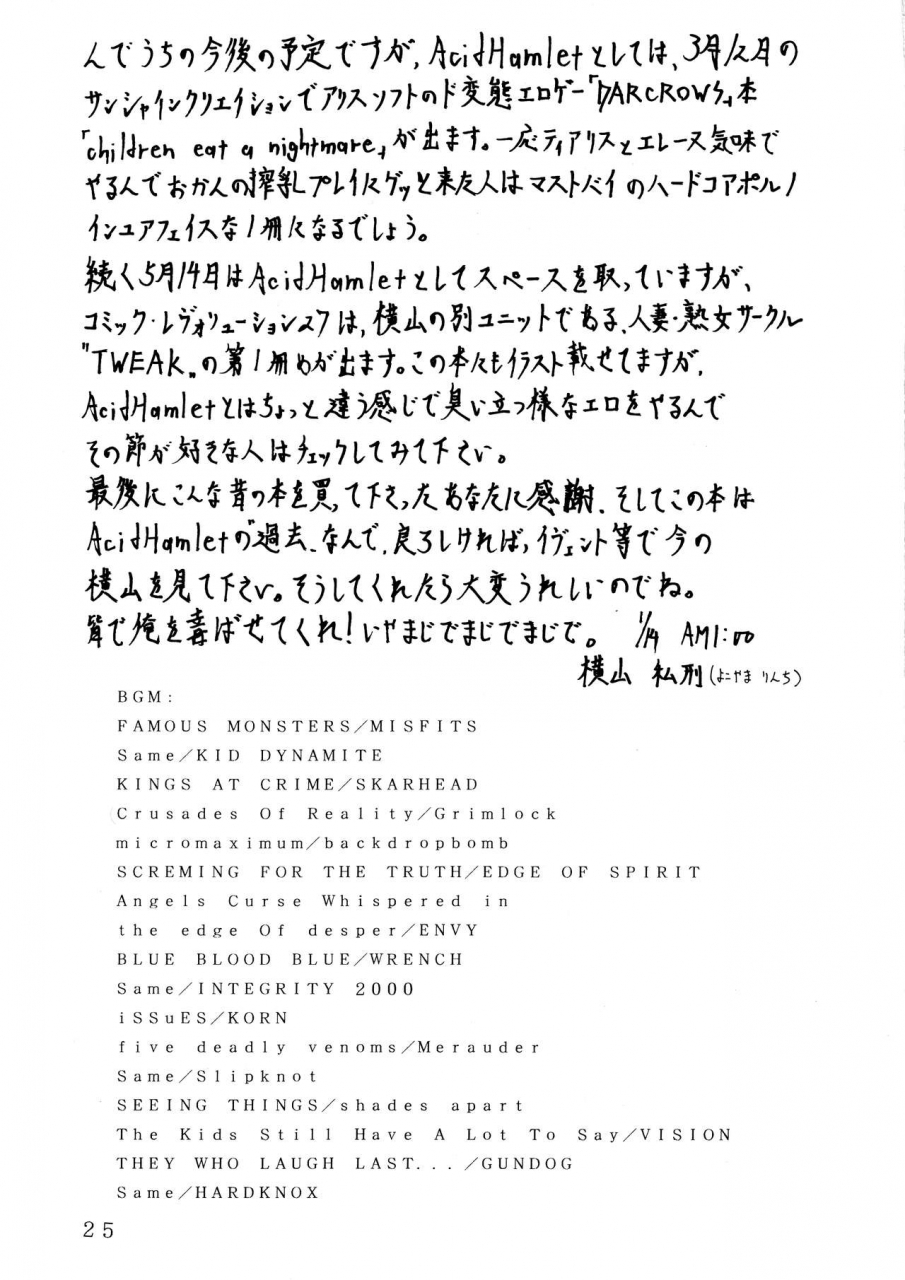 んでうちの今後の予定ですが、AcidHamletとしては、3月12日の
サンシャインクリエイションでアリスソフトのド変態エロゲー「DARCROWS」本
「children eat a nightmare」が出ます。一応ティアリスとエレーヌ気味で
やるんでおかんの搾乳プレイにグッと来た人はマストバイのハードコアポルノ
インユアフェイスな1冊になるでしょう。
続く5月14日はAcidHamletとしてスペースを取っていますが、
コミック・レヴォリューション27は、横山の別ユニットである、人妻・熟女サークル
"TWEAK"の第1冊めが出ます。この本にもイラスト載せてますが、
AcidHamletとはちょっと違う感じで臭い立つ様なエロをやるんで
その節が好きな人はチェックしてみて下さい。
最後にこんな昔の本を買って下さったあなたに感謝、そしてこの本は
AcidHamletの"過去"なんで、良ろしければ、イヴェント等で今の
横山を見て下さい。そうしてくれたら大変うれしいのでね。
皆で俺を喜ばせてくれ!いやまじでまじでまじで。 1/19 AM1:00
横山 私刑(よこやま りんち)
BGM:
FAMOUS MONSTERS/MISFITS
Same/KID DYNAMITE
KINGS AT CRIME/SKARHEAD
Crusades Of Reality/Grimlock
micromaximum/backdropbomb
SCREMING FOR THE TRUTH/EDGE OF SPIRIT
Angels Curse Whispered in
the edge Of desper/ENVY
BLUE BLOOD BLUE/WRENCH
Same/INTEGRITY 2000
iSSuES/KORN
five deadly venoms/Merauder
Same/Slipknot
SEEING THINGS/shades apart
The Kids Still Have A Lot To Say/VISION
THEY WHO LAUGH LAST.../GUNDOG
Same/HARDKNOX
25